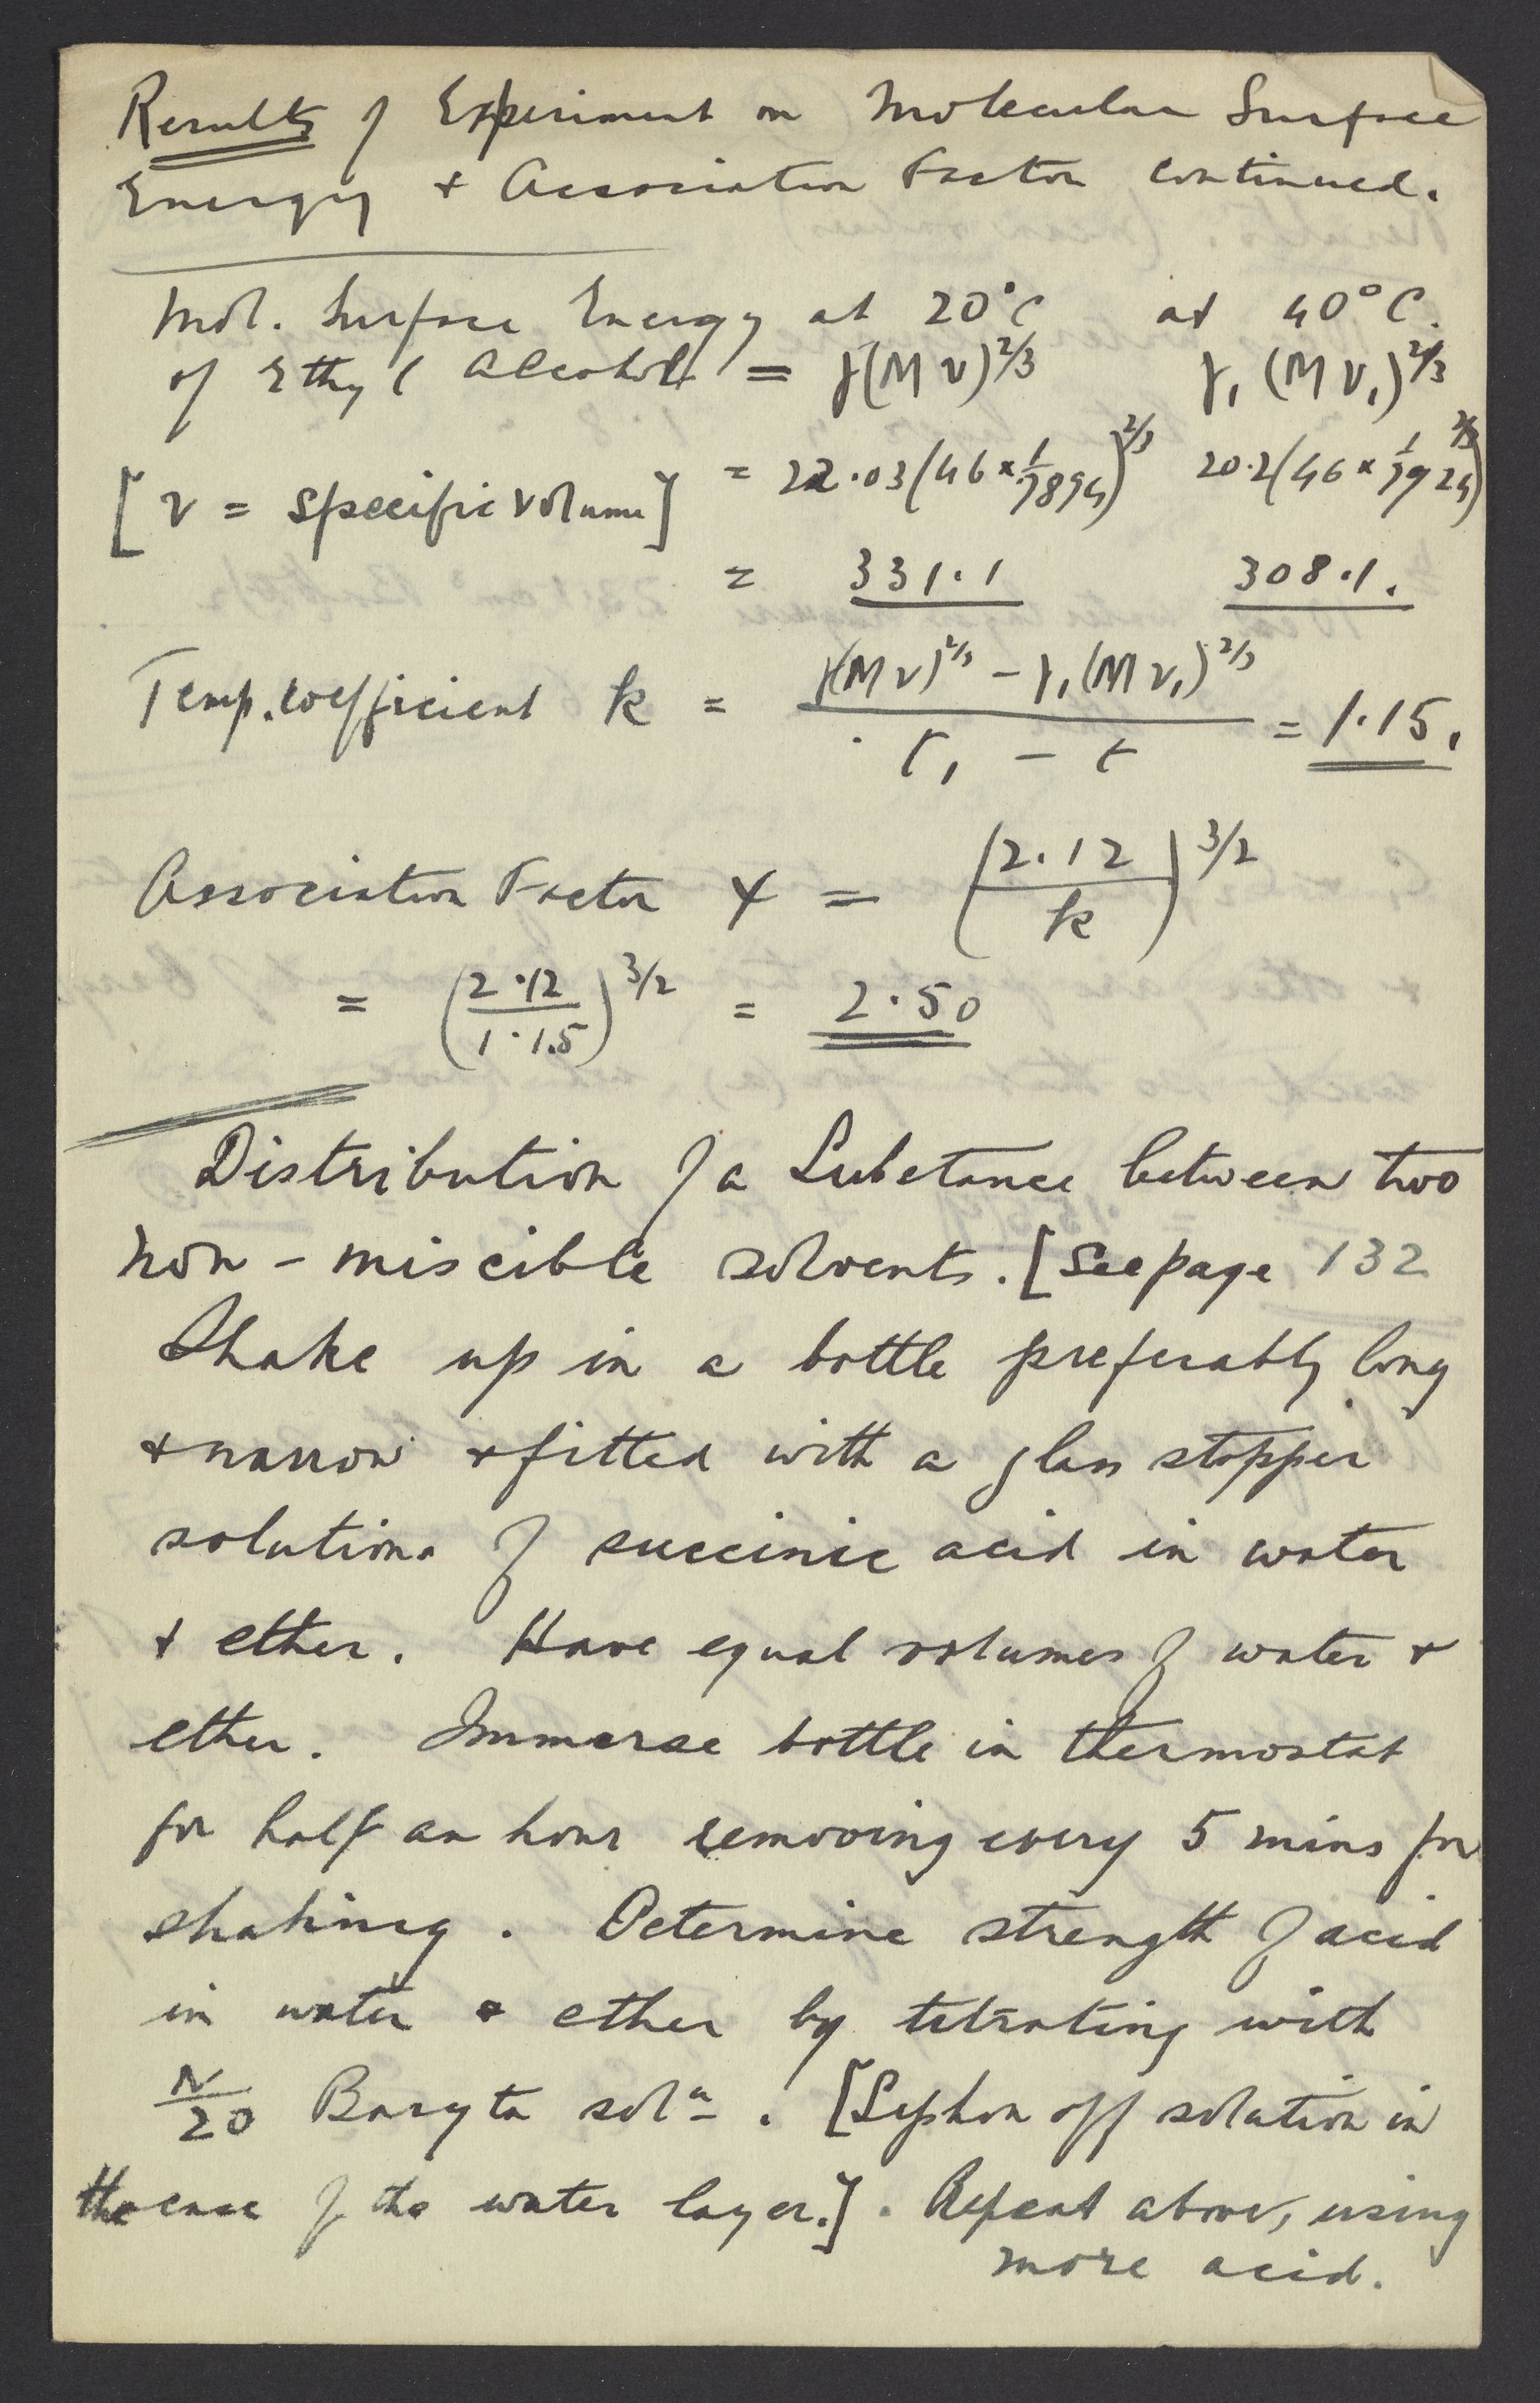 Results of Experiment on Molecular Surface
Energy & Association Factor continued.
Mol. Surface Energy at 20°C at 40°C.
of Ethyl Alcohol = γ(Mv)^2/3 γ₁(Mv₁)^2/3
[v = specific volume] = 22.03(46 × 1/.7894)^2/3 20.2(46 × 1/.7924)^2/3
= 331.1 308.1.
Temp. coefficient k = γ(Mv)^2/3 − γ₁(Mv₁)^2/3 / t₁ − t = 1.15.
Association Factor x = (2.12/k)^3/2
= (2.12/1.15)^3/2 = 2.50
Distribution of a Substance between two
non-miscible solvents. [See page 132
Shake up in a bottle preferably long
& narrow & fitted with a glass stopper
solutions of succinic acid in water
& ether. Have equal volumes of water &
ether. Immerse bottle in thermostat
for half an hour removing every 5 mins for
shaking. Determine strength of acid
in water & ether by titrating with
N/20 Baryta solⁿ. [Syphon off solution in
the case of the water layer.]. Repeat above, using
more acid.